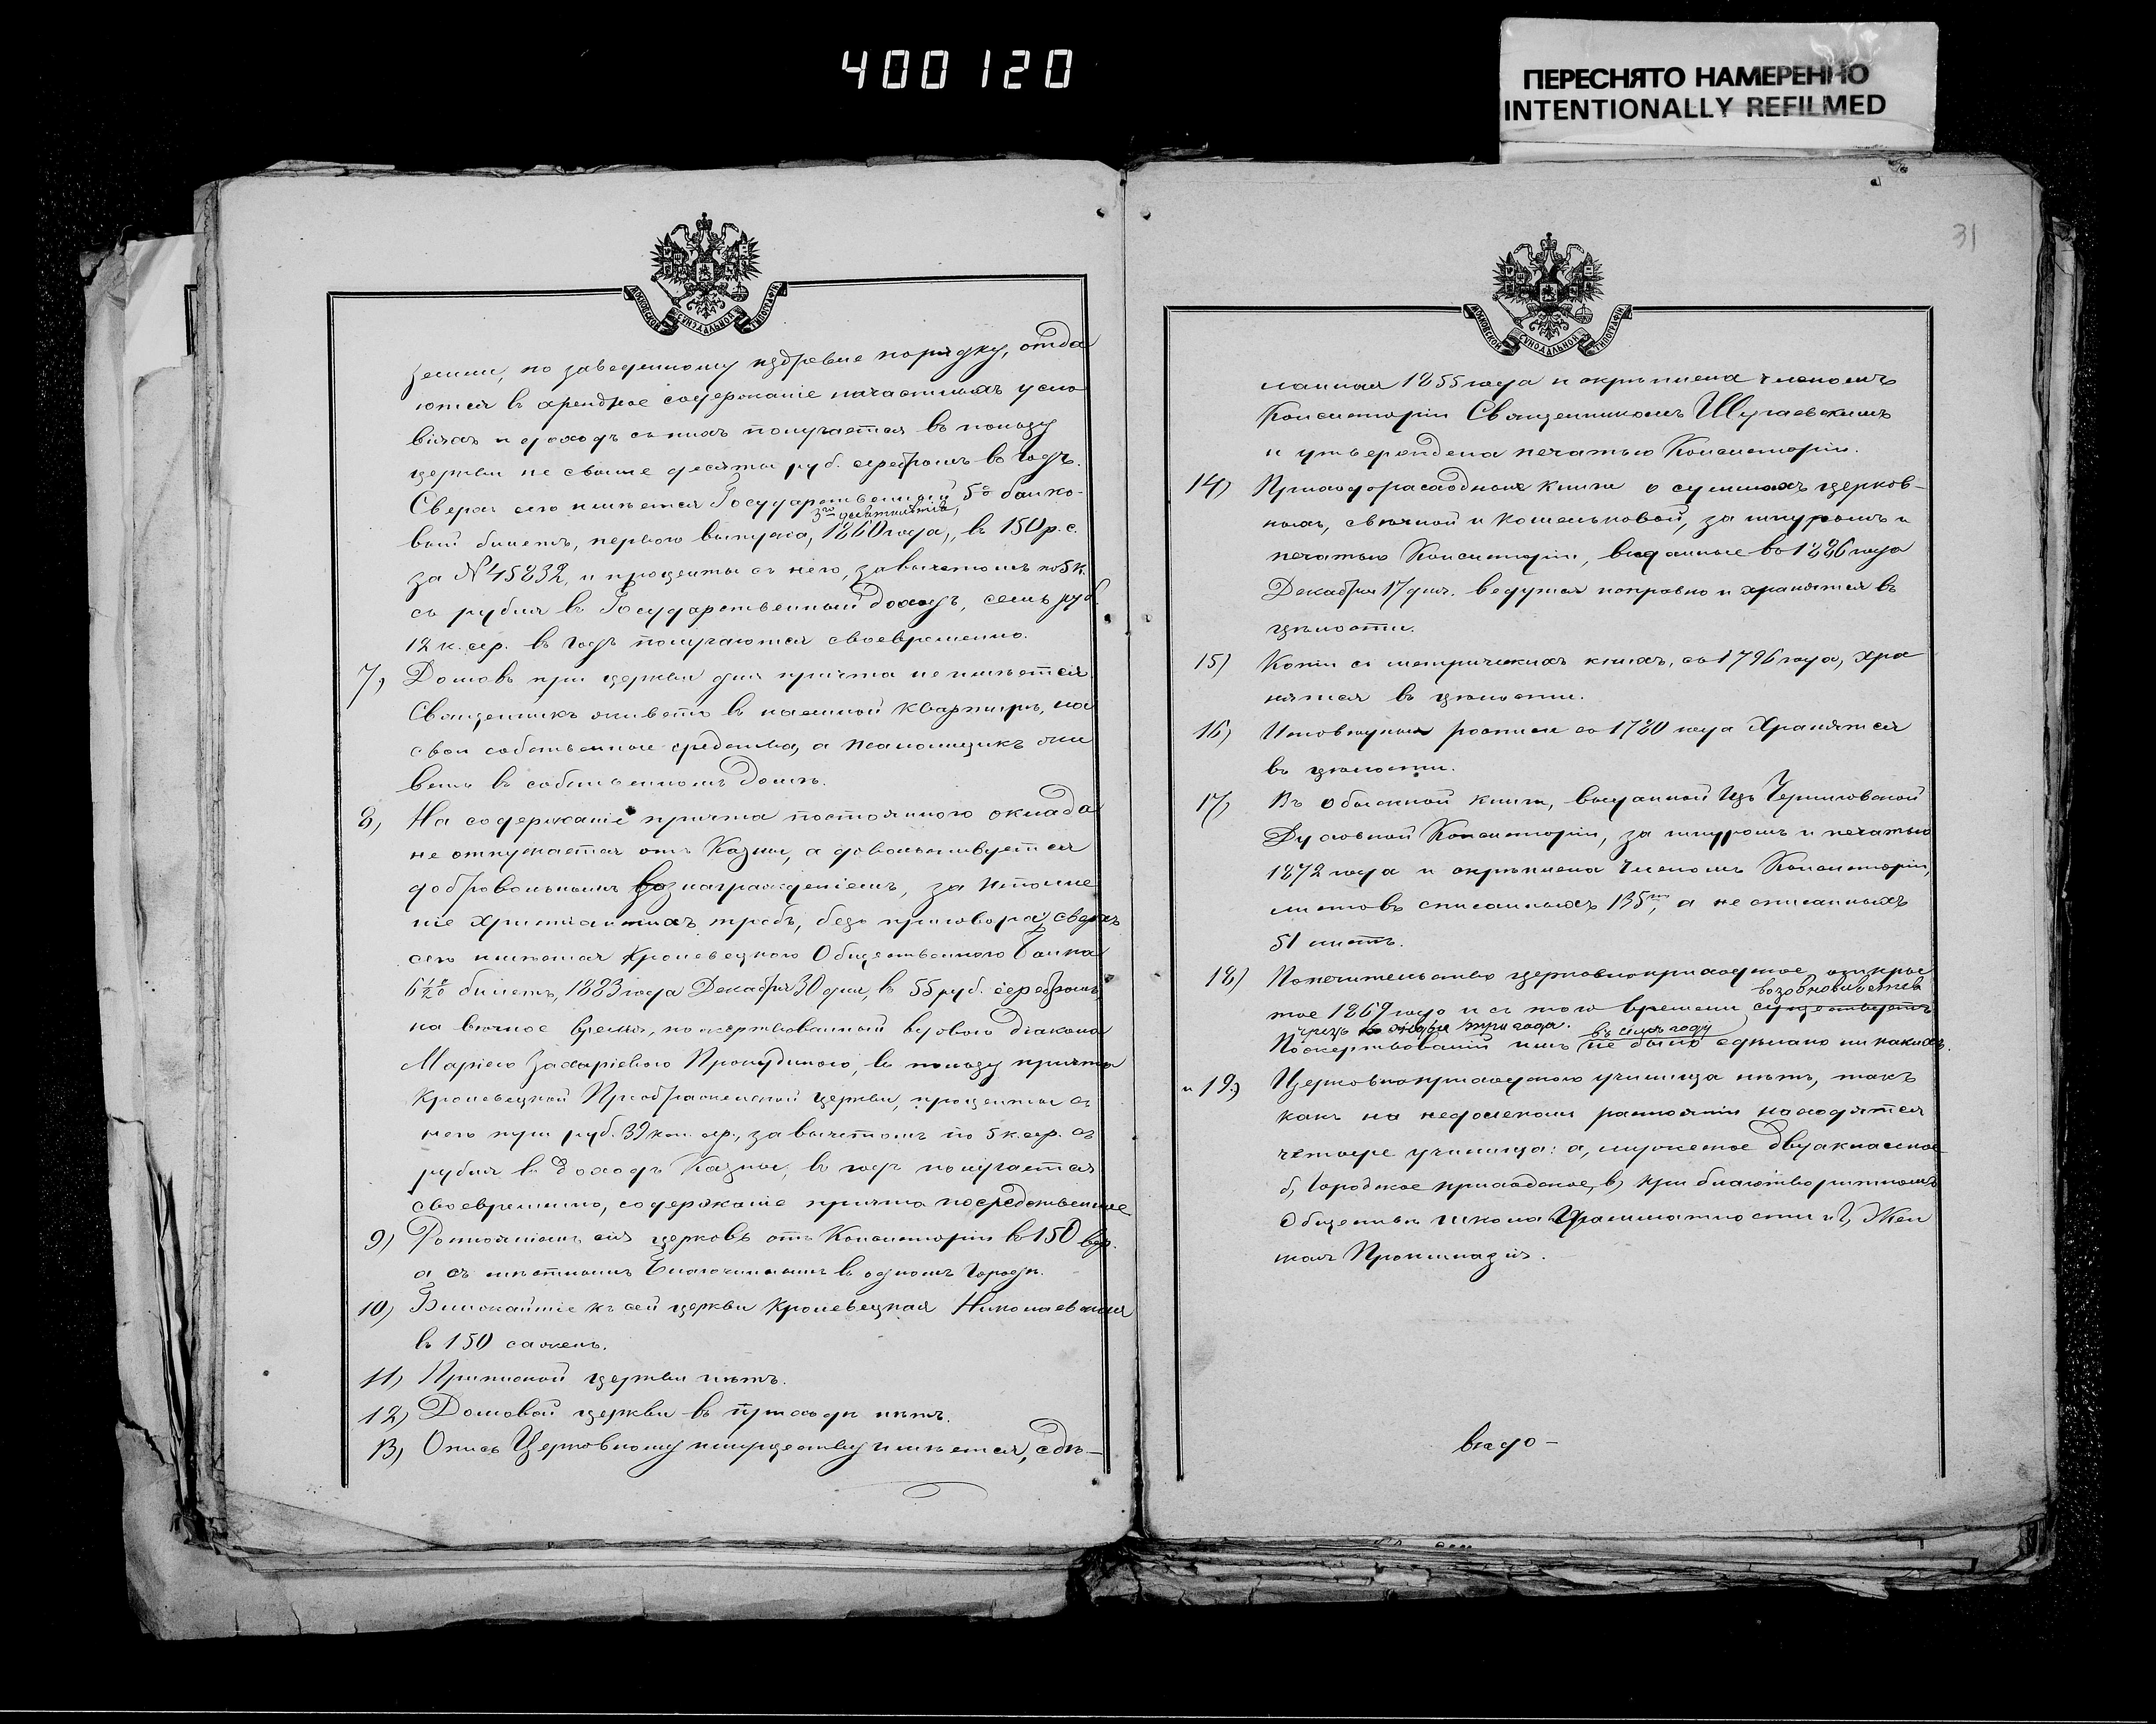 400120
ПЕРЕСНЯТО НАМЕРЕННО
INTENTIONALLY REFILMED
31
МОСКОВСКОЙ СѴНОДАЛЬНОЙ ТИПОГРАФІИ
земли, по заведенному издревле порядку, отда
ются въ арендное содержаніе на частныхъ усло
віяхъ и доходъ съ нихъ получается въ пользу
церкви не свыше десяти руб. серебромъ въ годъ.
Сверхъ сего имѣется Государственный 5% банко-
3го десятилѣтія,
вый билетъ, перваго выпуска, 1860 года, въ 150 р. с.
за № 45832, и проценты съ него, за вычетомъ по 5 к.
съ рубля въ Государственный доходъ, семь руб.
12 к. сер. въ годъ получаются своевременно.
7) Домовъ при церкви для причта не имѣется.
Священникъ живетъ въ наемной квартирѣ, на
свои собственные средства, а псаломщикъ жи
ветъ въ собственномъ домѣ.
8) На содержаніе причта постояннаго оклада
не отпускается отъ Казны, а довольствуется
добровольнымъ вознагражденіемъ, за исполне
ніе христіанскихъ требъ, безъ приговора; сверхъ
сего имѣется Кролевецкаго Общественнаго Банка
6½% билетъ, 1883 года Декабря 30 дня, въ 55 руб. серебромъ,
на вѣчное время, пожертвованный вдовою діакона
Маріею Захаріевою Прокудиною, въ пользу причта
Кролевецкой Преображенской церкви, проценты съ
него три руб. 39 коп. сер., за вычетомъ по 5 к. сер. съ
рубля въ доходъ Казны, въ годъ получается
своевременно, содержаніе причта посредственное
9) Разстояніемъ сія церковь отъ Консисторіи въ 150 вер.
а съ мѣстнымъ Благочиннымъ въ одномъ городѣ.
10) Ближайшіе къ сей церкви Кролевецкая Николаевская
въ 150 сажень.
11) Приписной церкви нѣтъ.
12) Домовой церкви въ приходѣ нѣтъ.
13) Опись Церковному имуществу имѣется, сдѣ-
МОСКОВСКОЙ СѴНОДАЛЬНОЙ ТИПОГРАФІИ
ланная 1855 года и скрѣплена членомъ
Консисторіи Священникомъ Шугаевскимъ
и утверждена печатью Консисторіи.
14) Приходорасходныя книги о суммахъ церков-
ныхъ, свѣчной и кошельковой, за шнуромъ и
печатью Консисторіи, выданные въ 1886 года
Декабря 17 дня. ведутся исправно и хранятся въ
цѣлости.
15) Копіи съ метрическихъ книгъ, съ 1796 года, хра
нятся въ цѣлости.
16) Исповѣдныя росписи съ 1780 года хранятся
въ цѣлости.
17) Въ обыскной книгѣ, выданной изъ Черниговской
Духовной Консисторіи, за шнуромъ и печатью
1872 года и скрѣплена Членомъ Консисторіи,
листовъ списанныхъ 135ть, а не списанныхъ
51 листъ.
18) Попечительство церковноприходское, откры
возобновляется
тое 1869 году и съ того времени существуетъ
чрезъ каждые три года. въ семъ году
Пожертвованій имъ не было сдѣлано никакихъ.
и 19) Церковноприходскаго училища нѣтъ, такъ
какъ на недалекомъ разстояніи находятся
четыре училища: а, мужское двухклассное
б, Городское приходское, в) при благотворительномъ
Обществѣ школа Грамматности и г, Жен
ская Прогимназія.
вѣдо-